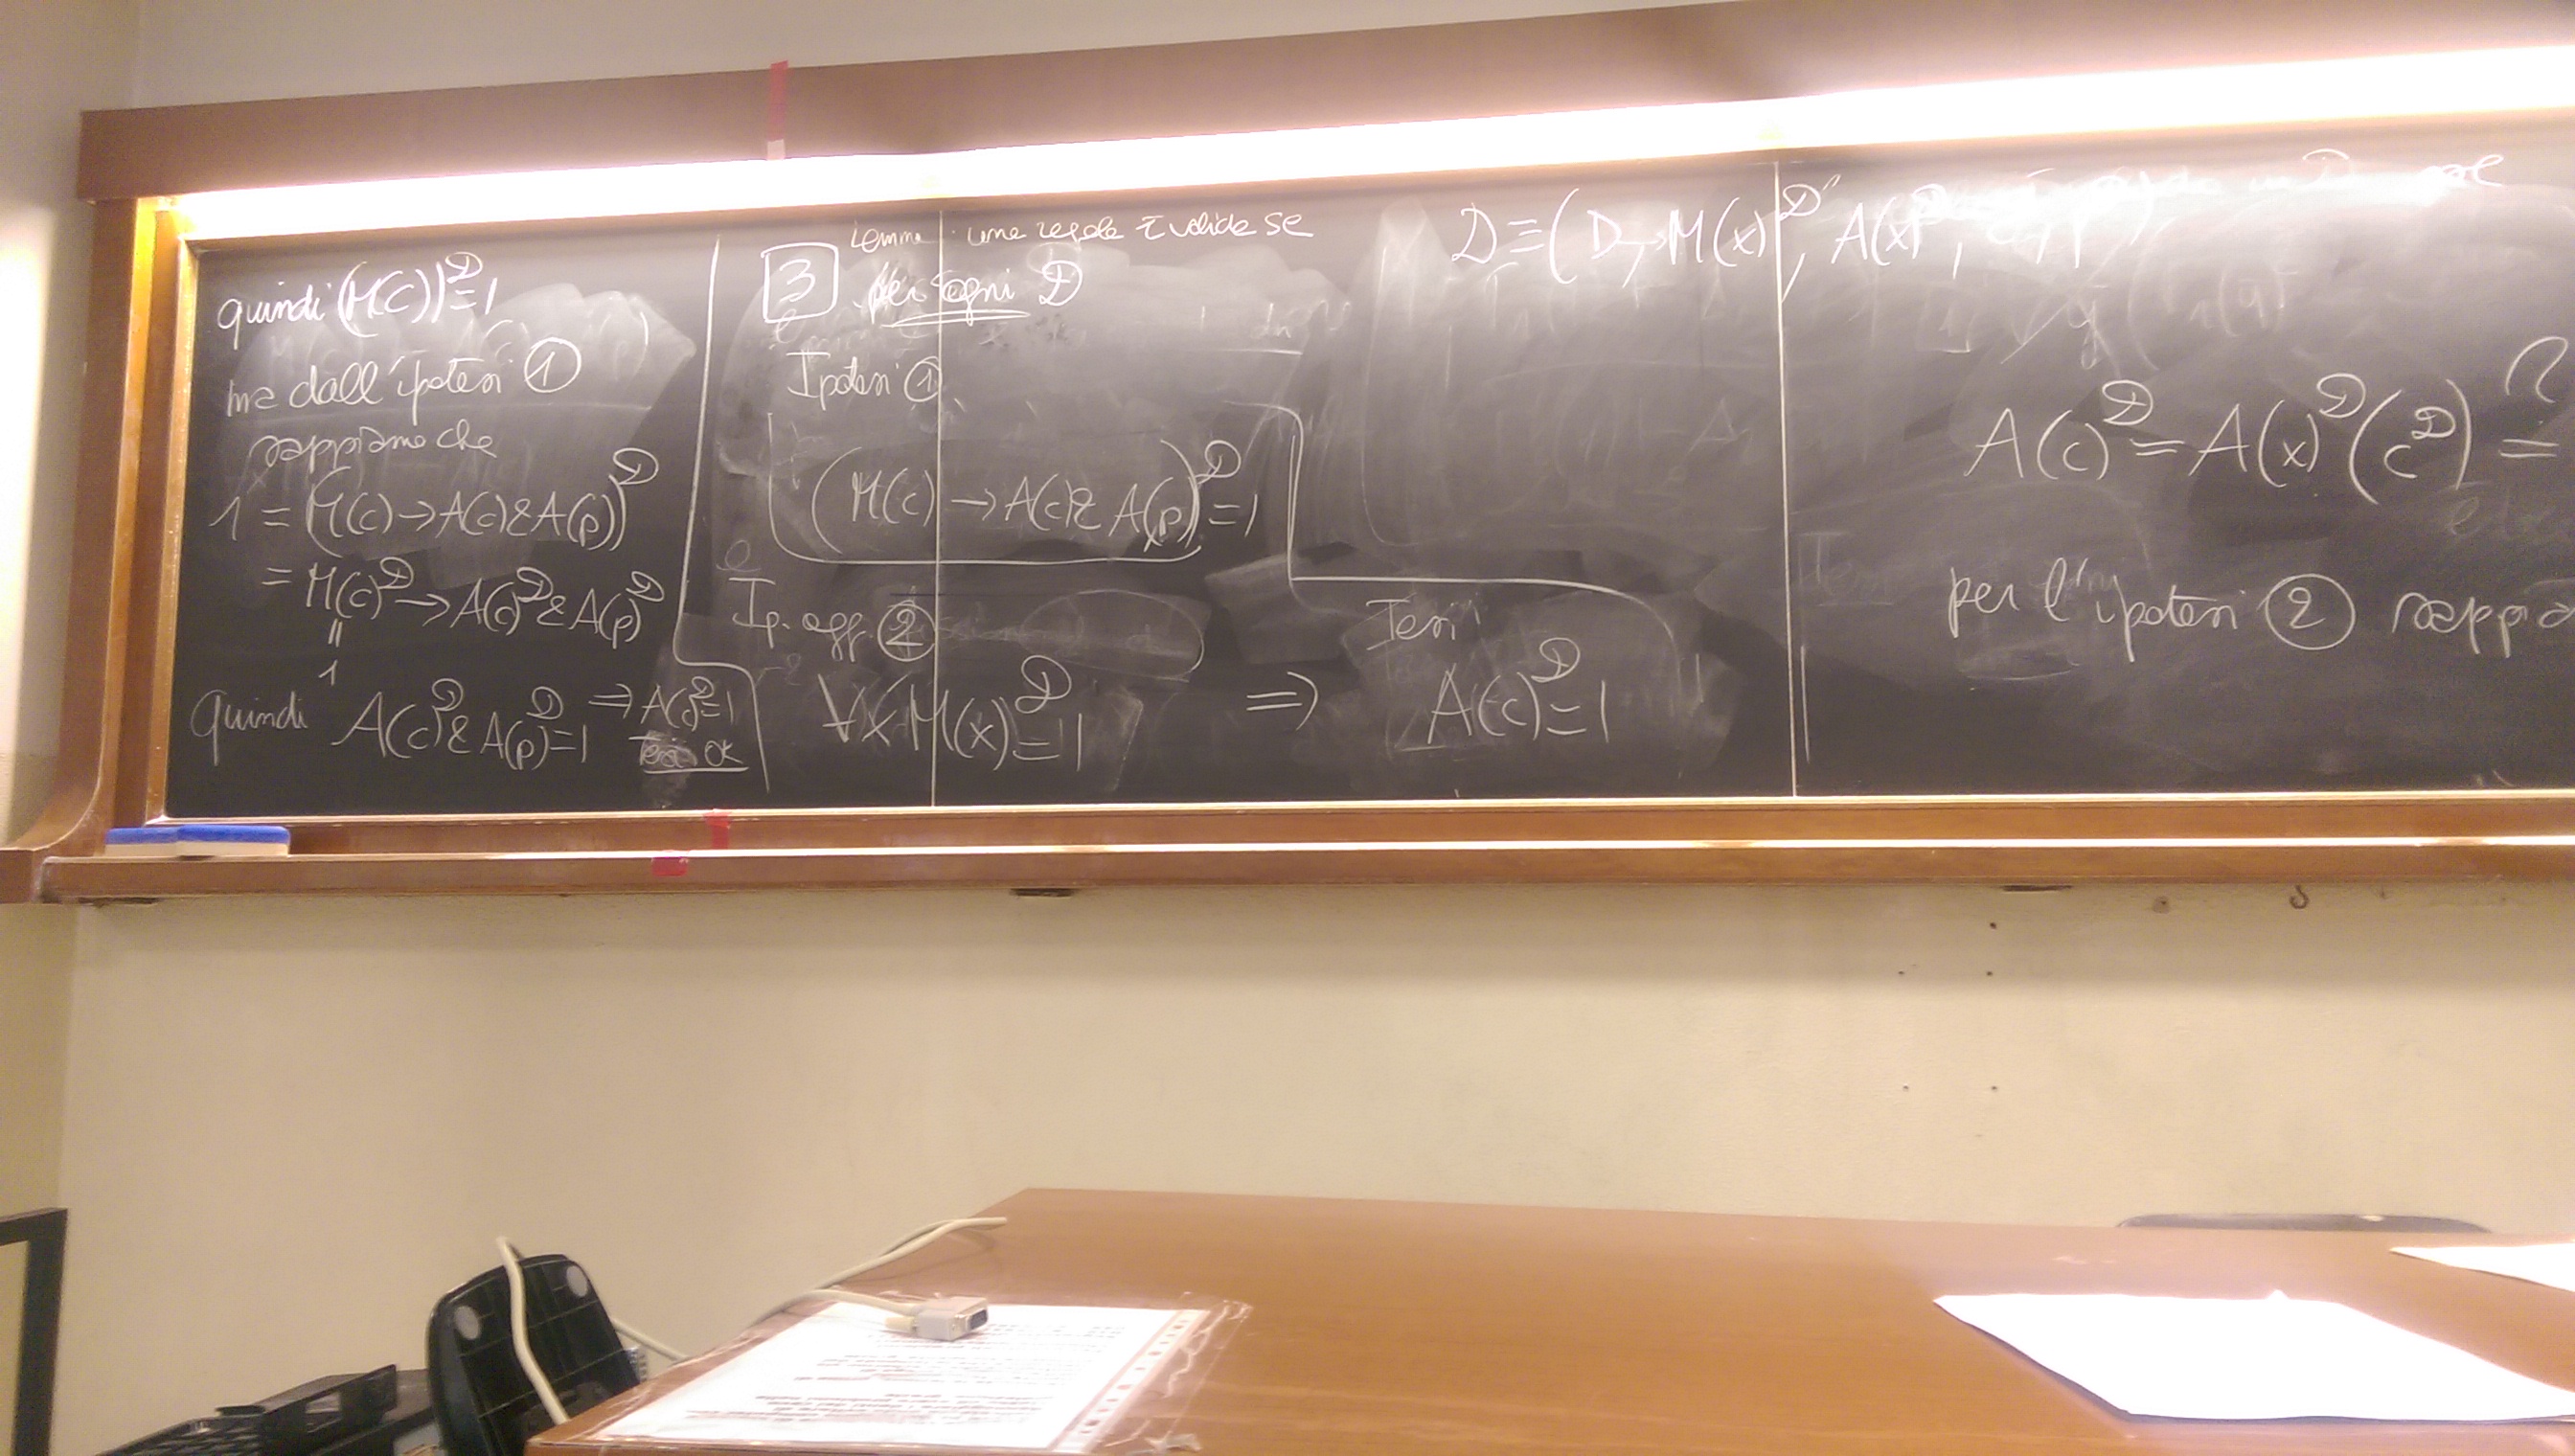 quindi (M(c))^D = 1
ma dall'ipotesi ①
sappiamo che
1 = (M(c) → A(c) & A(p))^D
= M(c)^D → A(c)^D & A(p)^D
"
1
quindi A(c)^D & A(p)^D = 1 ⇒ A(c)^D = 1
tesi ok
Lemma: una regola è valida se
3 per ogni D
Ipotesi ①
(M(c) → A(c) & A(p))^D = 1
e
Ip. agg. ②
∀x M(x)^D = 1 ⇒
Tesi
A(c)^D = 1
D ≡ (D, M(x)^D, A(x)^D,
A(c)^D = A(x)^D (c^D) =
?
per l'ipotesi ② sappia